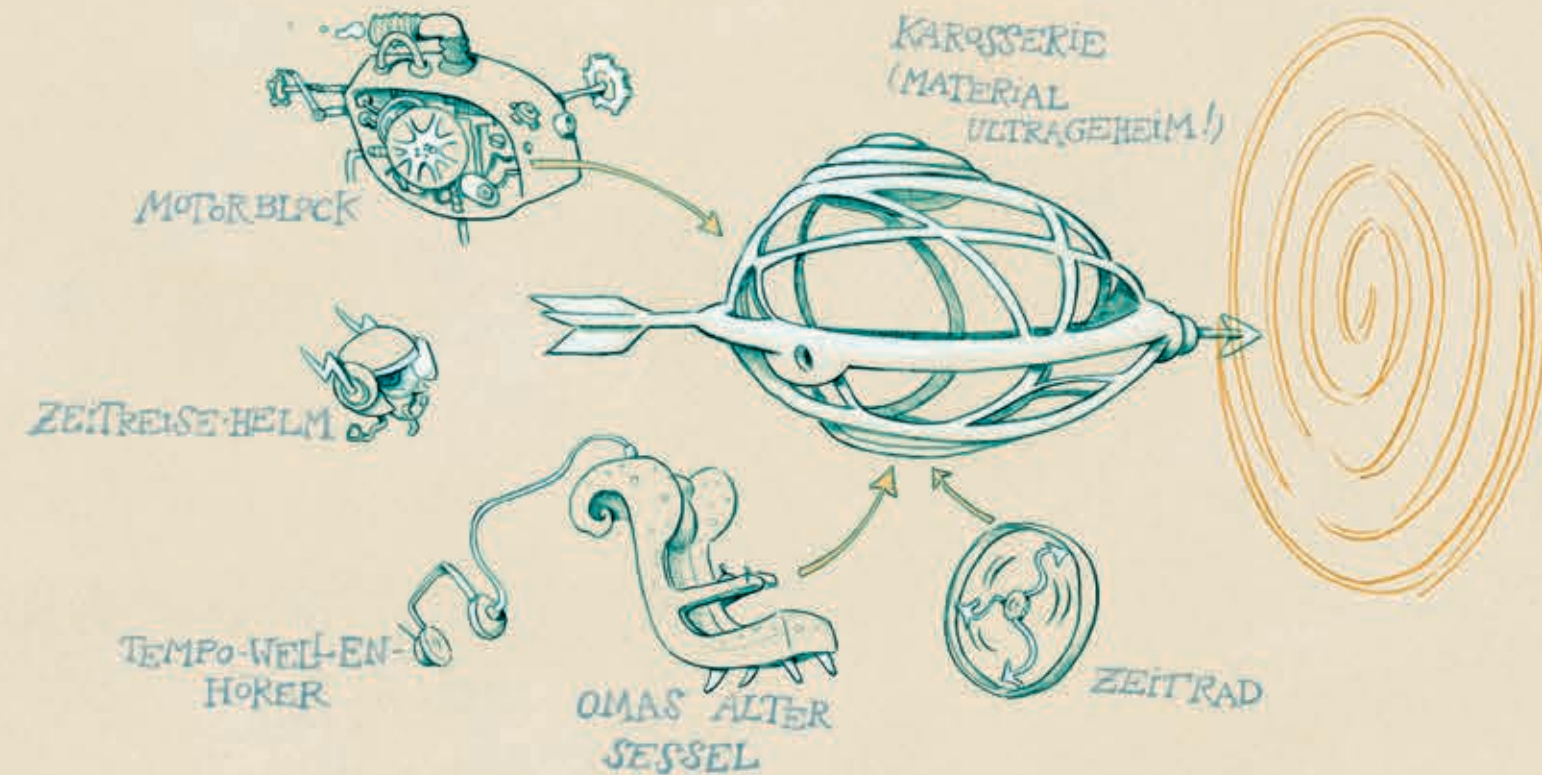 KAROSSERIE
(MATERIAL
ULTRAGEHEIM!)
MOTORBLOCK
ZEITREISE-HELM
TEMPO-WELLEN-
HÖRER
OMAS ALTER
SESSEL
ZEITRAD